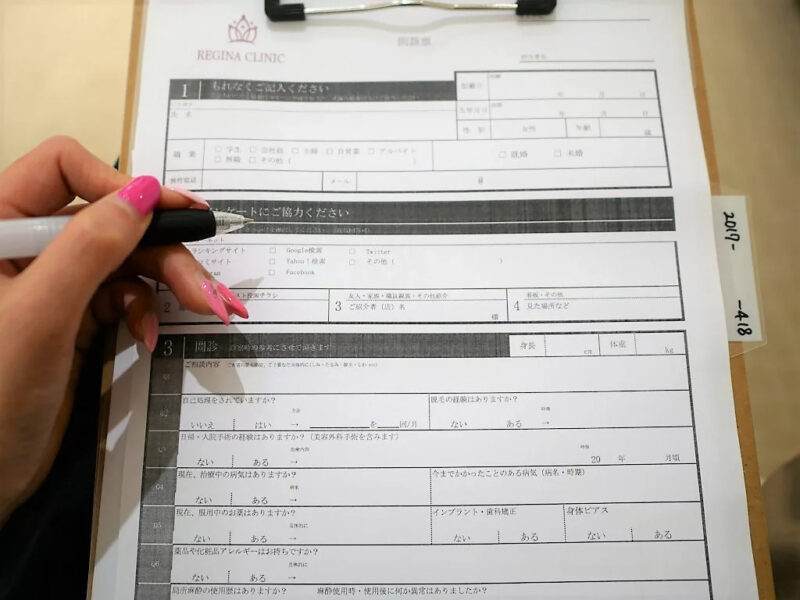 REGINA CLINIC
問診票
1 もれなくご記入ください
記載日 年 月 日
氏名
生年月日 年 月 日
性別 女性 年齢 歳
職業 □ 学生 □ 会社員 □ 主婦 □ 自営業 □ アルバイト
□ 無職 □ その他 ( )
□ 既婚 □ 未婚
携帯電話 メール @
ケートにご協力ください
ランキングサイト □ Google検索 □ Twitter
ミサイト □ Yahoo!検索 □ その他 ( )
□ Facebook
2
友人・家族・職員親族・その他紹介
3 ご紹介者(店)名 様
看板・その他
4 見た場所など
3 問診
身長 cm 体重 kg
ご相談内容
Q2 自己処理をされていますか?
いいえ はい → を 回/月
脱毛の経験はありますか?
ない ある →
Q3 日帰・入院手術の経験はありますか?(美容外科手術を含みます)
ない ある → 20 年 月頃
Q4 現在、治療中の病気はありますか?
ない ある →
今までかかったことのある病気(病名・時期)
Q5 現在、服用中のお薬はありますか?
ない ある →
インプラント・歯科矯正
ない ある
身体ピアス
ない ある
Q6 薬品や化粧品アレルギーはお持ちですか?
ない ある →
局所麻酔の使用歴はありますか? 麻酔使用時・使用後に何か異常はありましたか?
2019-
-418